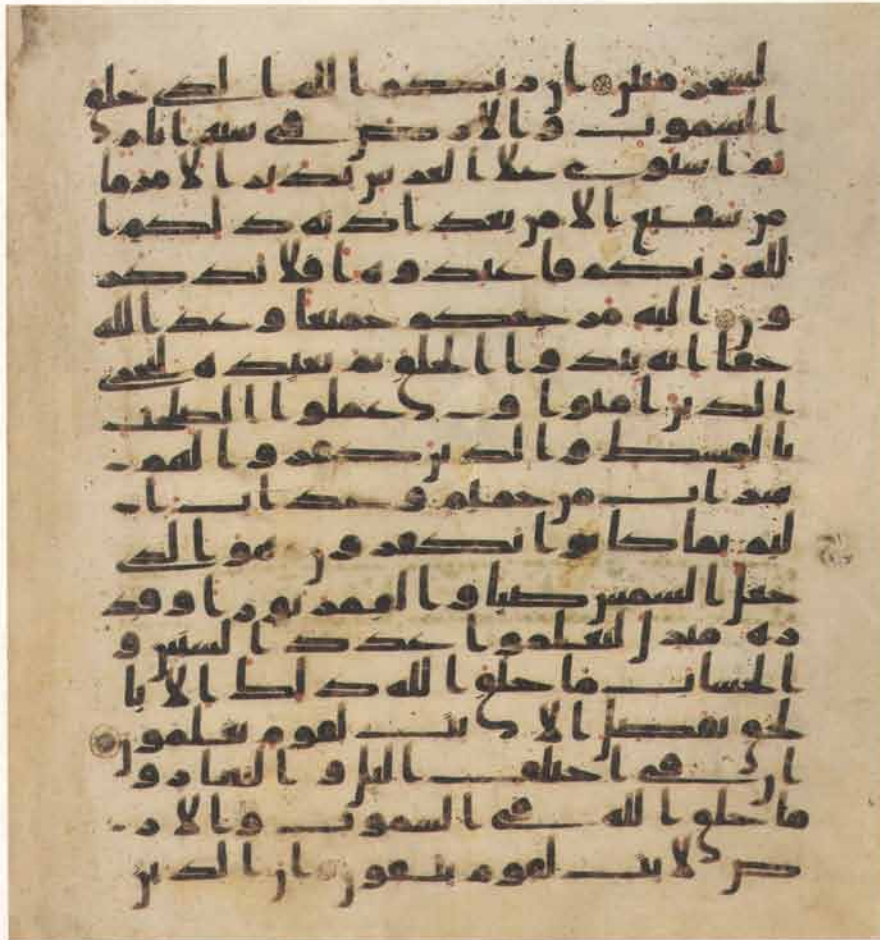 لسحر مبين ان ربكم الله الذي خلق
السموت والارض في ستة ايام
ثم استوى علا العرش يدبر الامر ما
من شفيع الا من بعد اذنه ذلكم ا
لله ربكم فاعبدوه افلا تذكر
ون اليه مرجعكم جميعا وعد الله
حقا انه يبدوا الخلق ثم يعيده ليجزي
الذين امنوا و عملوا الصلحت
بالقسط والذين كفروا لهم
شراب من حميم وعذاب ا
ليم بما كانوا يكفرون هو الذي
جعل الشمس ضيا والقمر نورا وقد
ره منزل لتعلموا عدد السنين و
الحساب ما خلق الله ذلك الا با
لحق يفصل الايت لقوم يعلمون
ان في اختلف اليل والنهار و
ما خلق الله في السموت والار
ض لايت لقوم يتقون ان الذين